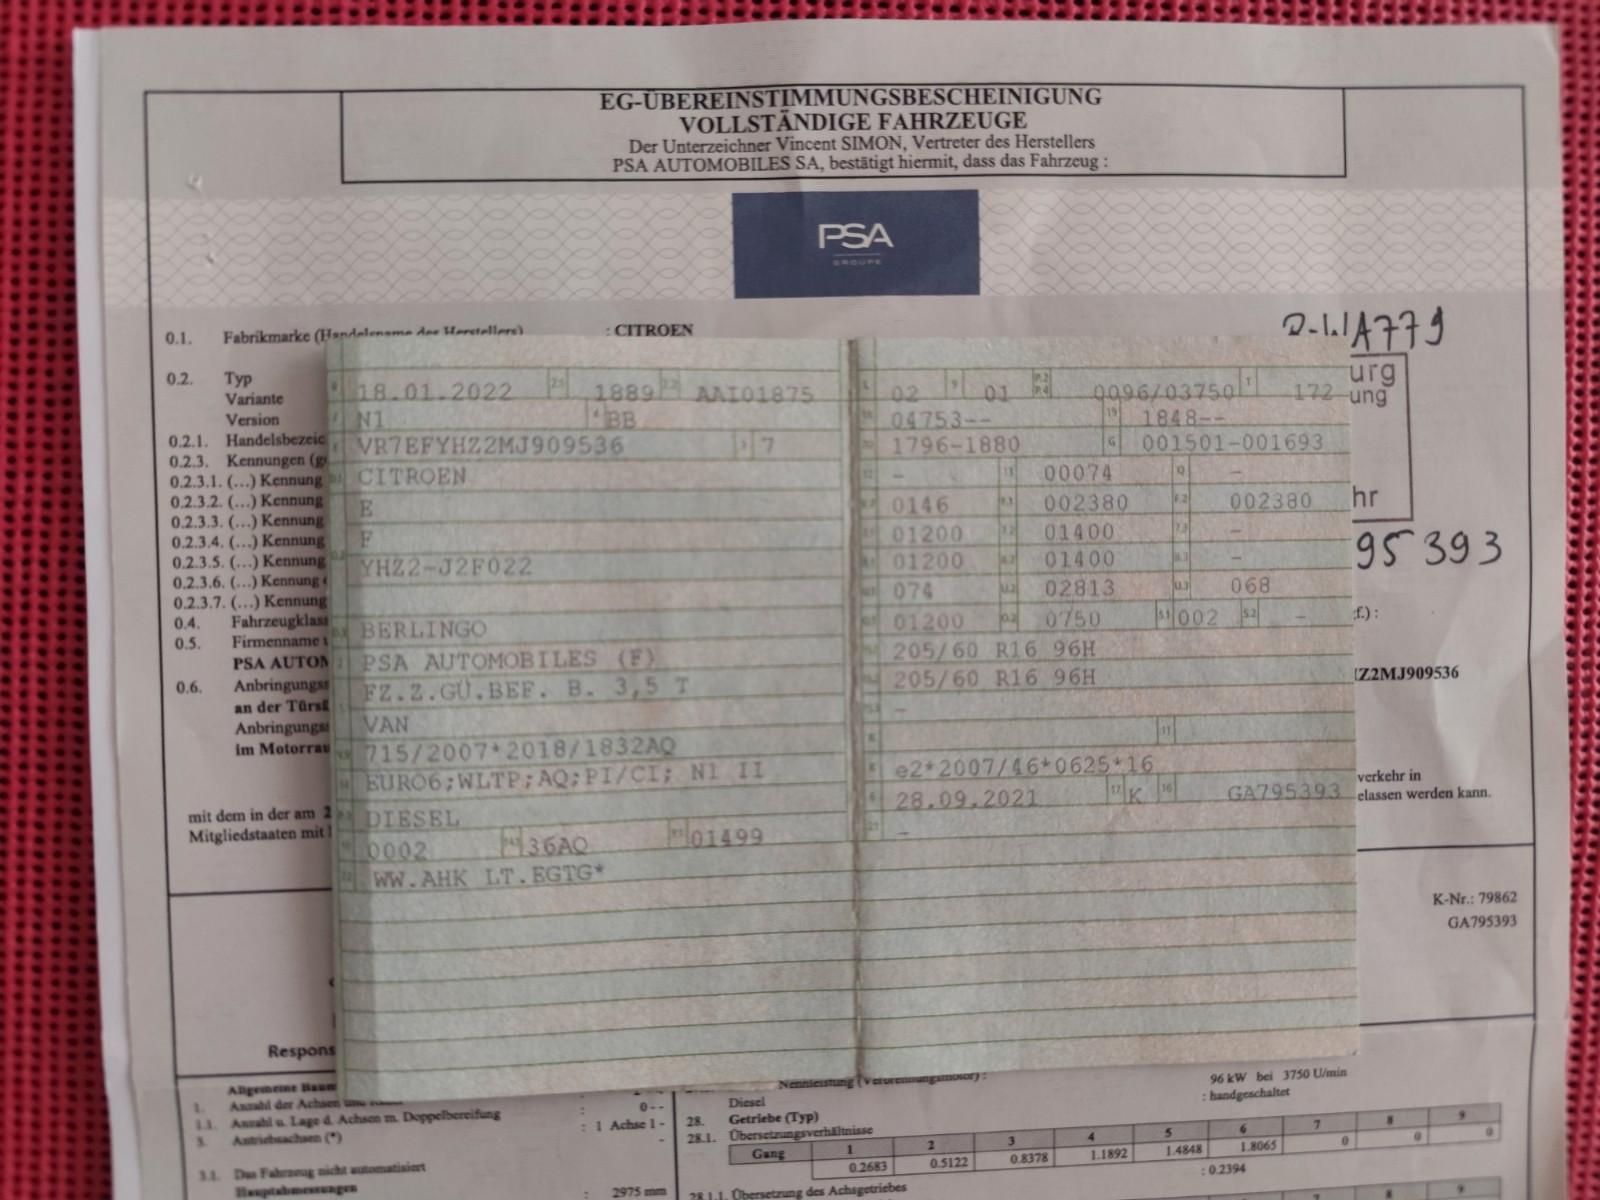 EG-ÜBEREINSTIMMUNGSBESCHEINIGUNG
VOLLSTÄNDIGE FAHRZEUGE
Der Unterzeichner Vincent SIMON, Vertreter des Herstellers
PSA AUTOMOBILES SA, bestätigt hiermit, dass das Fahrzeug :
PSA
GROUPE
0.1. Fabrikmarke (Handelsname des Herstellers) : CITROEN
A779
0.2. Typ
Variante
Version
0.2.1. Handelsbezeic
0.2.3. Kennungen (g
0.2.3.1. (...) Kennung
0.2.3.2. (...) Kennung
0.2.3.3. (...) Kennung
0.2.3.4. (...) Kennung
0.2.3.5. (...) Kennung
0.2.3.6. (...) Kennung
0.2.3.7. (...) Kennung
0.4. Fahrzeugklass
0.5. Firmenname
PSA AUTOM
0.6. Anbringungss
an der Türs
Anbringungss
im Motorrau
mit dem in der am 2
Mitgliedstaaten mit
18.01.2022 2.1 1889 2.2 AAI01875
N1 4 BB
VR7EFYHZ2MJ909536 3 7
CITROEN
E
F
YHZ2-J2F022
BERLINGO
PSA AUTOMOBILES (F)
FZ.Z.GÜ.BEF. B. 3,5 T
VAN
715/2007*2018/1832AQ
EURO6;WLTP;AQ;PI/CI; N1 II
DIESEL
0002 36AQ 01499
WW.AHK LT.EGTG*
L 02 9 01 P.2 P.4 0096/03750 T 172
04753-- 19 1848--
1796-1880 G 001501-001693
- 13 00074 Q -
0146 F.1 002380 F.2 002380
01200 7.2 01400 7.3 -
01200 8.2 01400 8.3 -
074 U.2 02813 U.3 068
01200 O.2 0750 S.1 002 S.2 -
205/60 R16 96H
205/60 R16 96H
-
11
e2*2007/46*0625*16
28.09.2021 17 K 16 GA795393
-
urg
ung
hr
95 393
f.) :
Z2MJ909536
verkehr in
elassen werden kann.
K-Nr.: 79862
GA795393
Respons
Allgemeine Baum
1. Anzahl der Achsen und
1.1. Anzahl u. Lage d. Achsen m. Doppelbereifung : 0 - -
3. Antriebsachsen (*) : 1 Achse 1 -
-
3.1. Das Fahrzeug nicht automatisiert
Hauptabmessungen
: 2975 mm
Nennleistung (Verbrennungsmotor) : 96 kW bei 3750 U/min
Diesel
28. Getriebe (Typ) : handgeschaltet
28.1. Übersetzungsverhältnisse
Gang 1 2 3 4 5 6 7 8 9
0.2683 0.5122 0.8378 1.1892 1.4848 1.8065 0 0 0
28.1.1. Übersetzung des Achsgetriebes : 0.2394
7 8 9